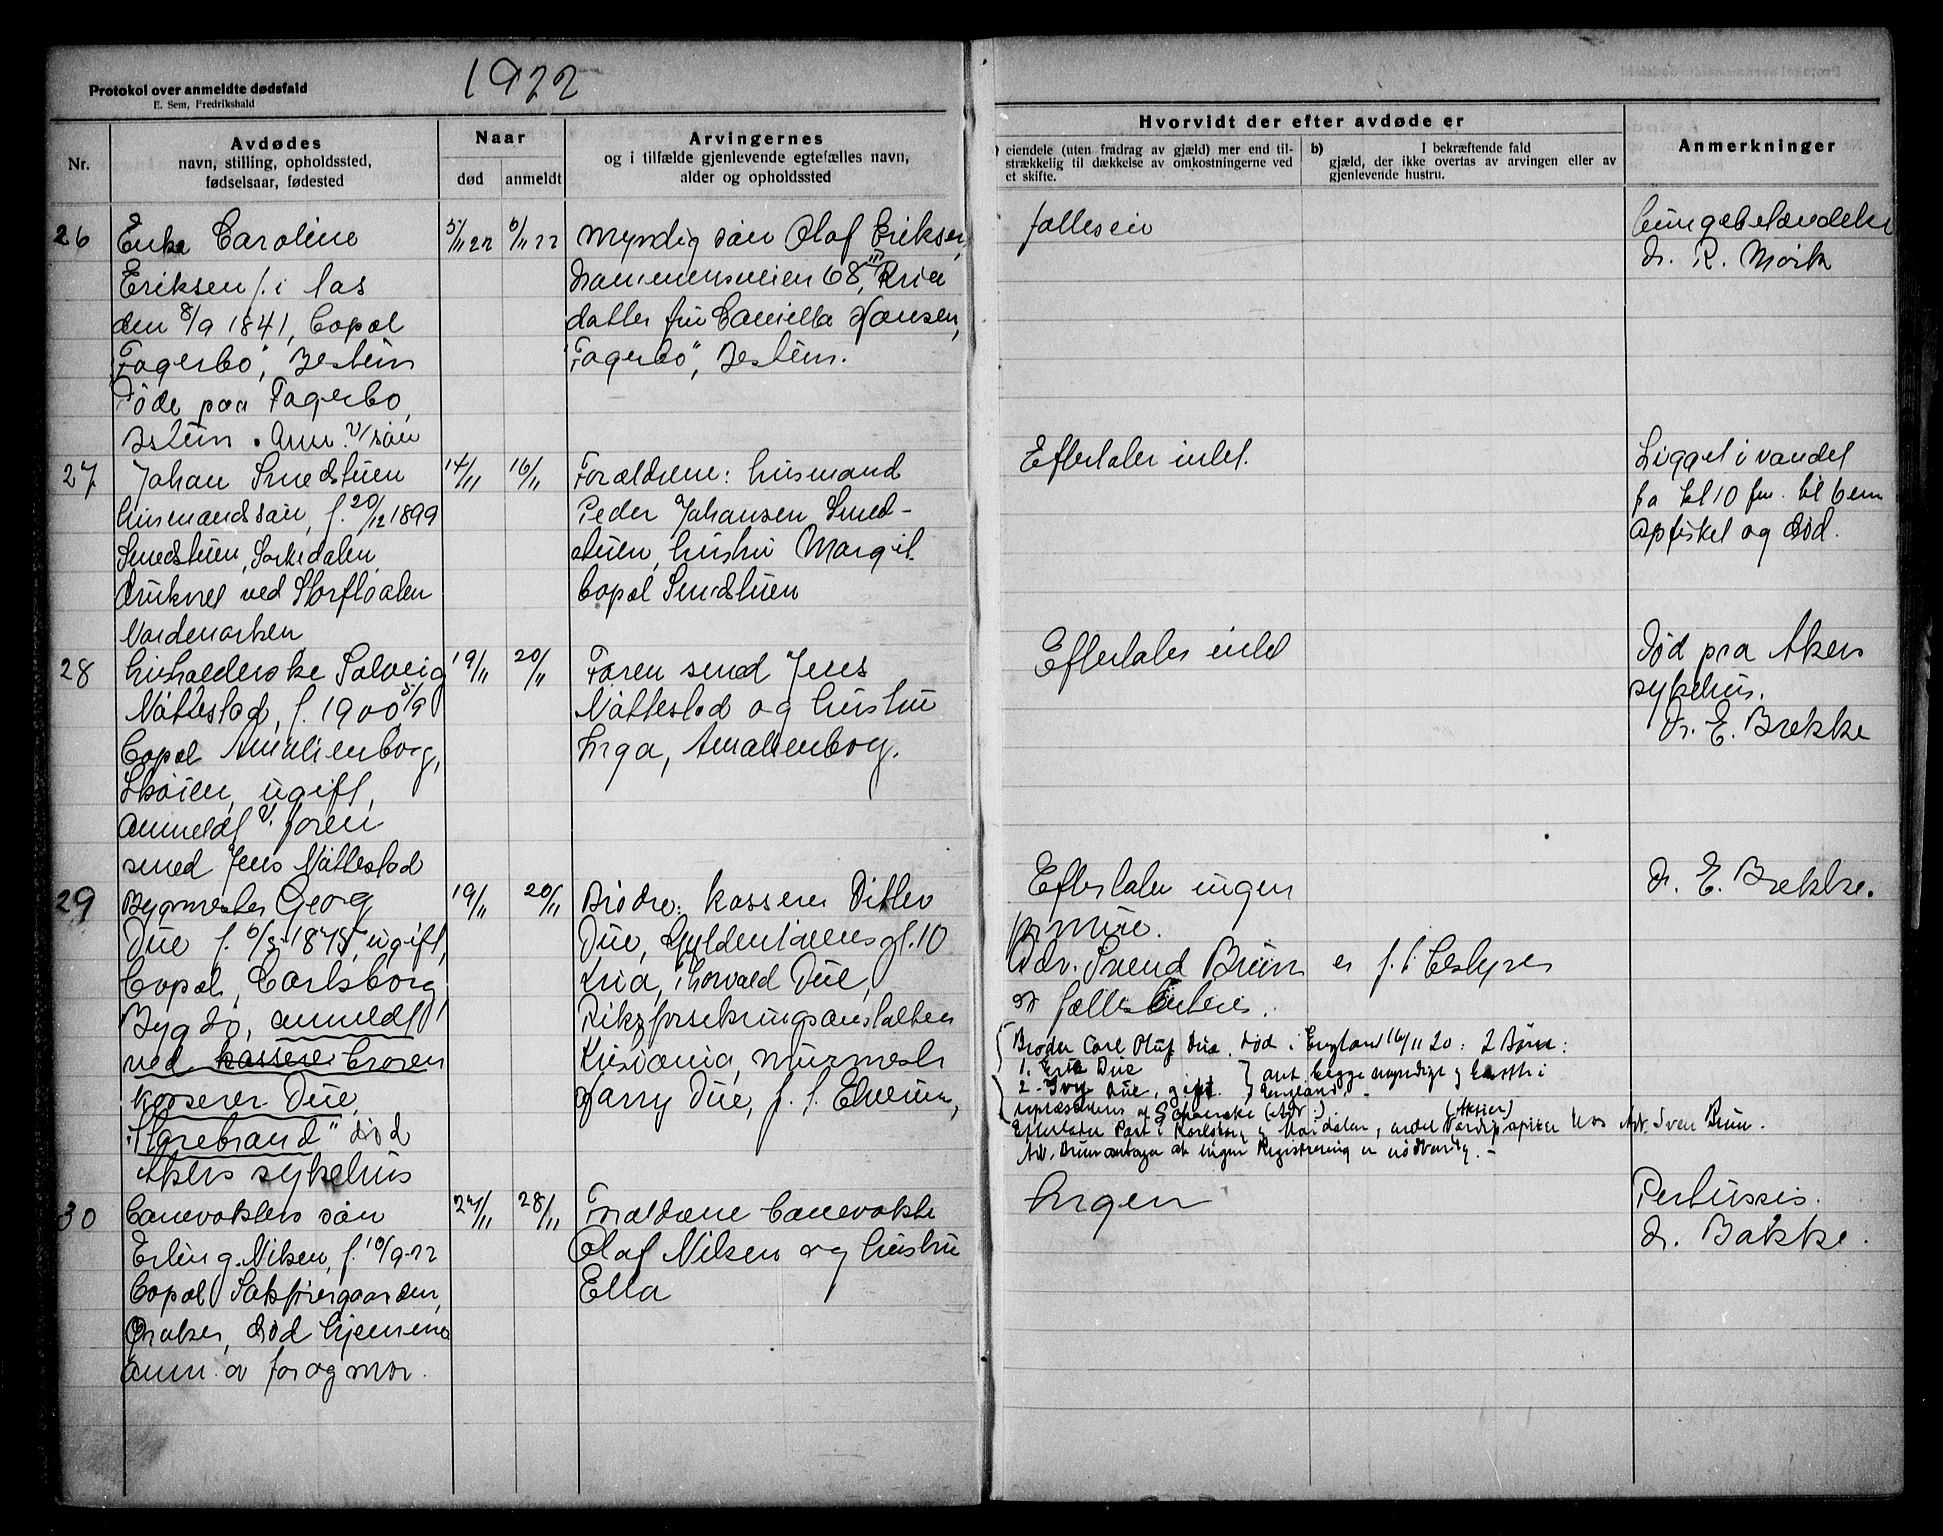 1922
Protokol over anmeldte dødsfald
E. Sem, Fredrikshald
Nr.
Avdødes
navn, stilling, opholdssted,
fødselsaar, fødested
Naar
død
anmeldt
Arvingernes
og i tilfælde gjenlevende egtefælles navn,
alder og opholdssted
Hvorvidt der efter avdøde er
eiendele (uten fradrag av gjæld) mer end til-
strækkelig til dækkelse av omkostningerne ved
et skifte.
b) I bekræftende fald
gjæld, der ikke overtas av arvingen eller av
gjenlevende hustru.
Anmerkninger
26
Enke Caroline
Eriksen f. i
den 8/9 1841, bopæl
"Fagerbo", Bestum
Døde paa Fagerbo,
Bestum. Anm. v/ søn
5/11 22
6/11 22
Myndig søn Olaf Eriksen,
Drammensveien 68 II, Kria
datter fru Hansen,
"Fagerbo", Bestum.
fælleseie
Lungebetændelse
Dr. R. Mork
27
Johan Smedstuen
husmandssøn, f. 20/12 1899
Smedstuen, Sørkedalen,
druknet ved Storfloaten
Nordmarken
14/11
16/11
Forældrene: husmand
Peder Johansen Smed-
stuen, hustru Margit
bopæl Smedstuen
Efterlater intet.
Ligget i vandet
fra kl 10 fm. til 6 em
opfisket og død.
28
husholderske Solveig
Nättestad, f. 1900 5/9
bopæl Amalienborg,
Skøien, ugift,
anmeldt v. faren
smed Jens Nättestad
19/11
20/11
Faren smed Jens
Nättestad og hustru
Inga, Amalienborg.
Efterlater intet
Død paa Akers
sykehus.
Dr. E. Brekke
29
Bygmester Georg
Due f. 6/3 1875, ugift,
bopæl, Carlsborg
Bygdø, anmeldt
ved kasserer broren
kasserer Due,
"Storebrand" død
Akers sykehus
19/11
20/11
Brødre: kasserer Ditlev
Due, Gyldenløvens gt. 10
Kria, Thorvald Due,
Riksforsikringsanstalten
Kristiania, murmester
Harry Due, f. t. Elverum,
Efterlater ingen
Adv. Svend Bruun er f. t. bestyrer
av fællesboet.
Broder Carl Oluf Due. død i England 16/11 20: 2 Børn:
1. Erik Due
2. Ivy Due, gift. } ant. begge myndige og bosatte i
England. -
Efterlater Part i Karlsborg og Maridalen, andre Værdipapirer (Aksier) hos Adv. Sven Bruun.
Adv. Bruun antager at ingen Registrering er nødvendig. -
Dr. E. Brekke.
30
Banevokters søn
Erling Nilsen, f. 10/9-22
bopæl
Øraker, død hjemme
anm. av far og mor.
27/11
28/11
Forældrene banevokter
Olaf Nilsen og hustru
Ella
Ingen
Pertussis.
Dr. Bakke.